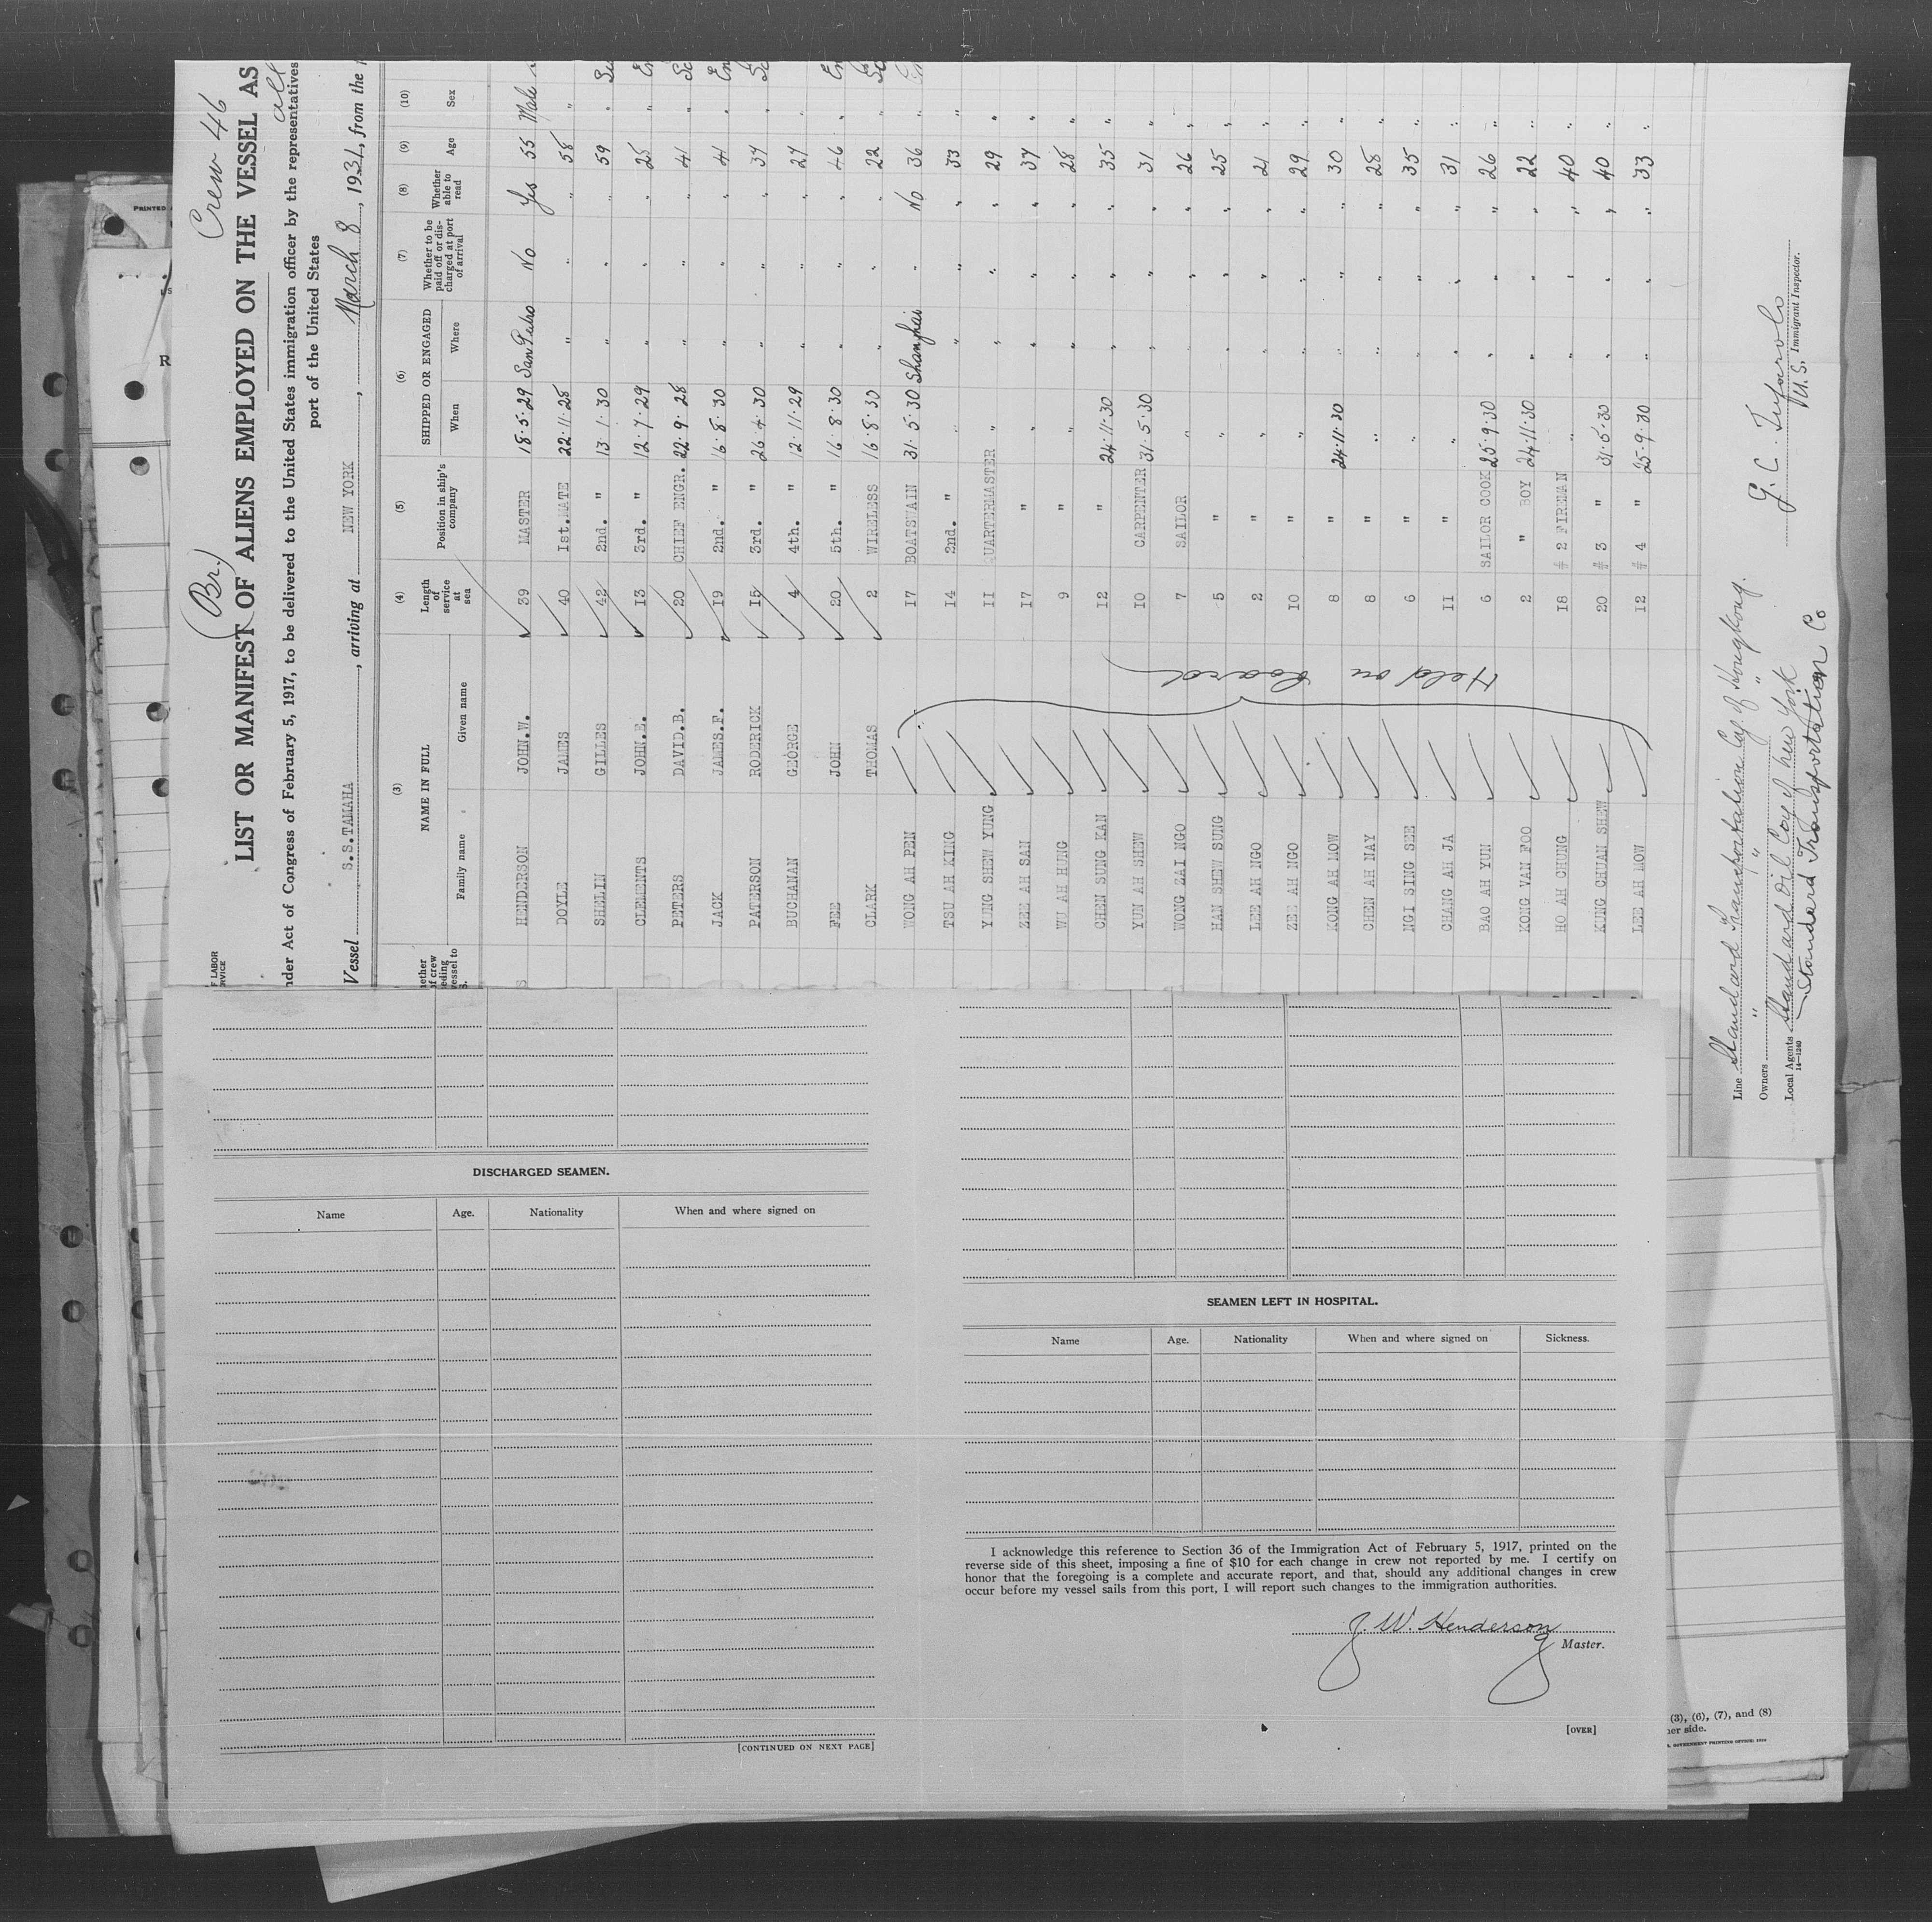 Crew 46
(Br.)
LIST OR MANIFEST OF ALIENS EMPLOYED ON THE VESSEL AS
all
nder Act of Congress of February 5, 1917, to be delivered to the United States immigration officer by the representatives
port of the United States
Vessel S.S.TAMAHA, arriving at NEW YORK, March 8, 1931, from the
(3) (4) (5) (6) (7) (8) (9) (10)
NAME IN FULL Length of service at sea Position in ship's company SHIPPED OR ENGAGED Whether to be paid off or discharged at port of arrival Whether able to read Age Sex
Family name Given name When Where
HENDERSON JOHN.W. 39 MASTER 18.5.29 San Pedro No Yes 55 Male
DOYLE JAMES 40 Ist.MATE 22.11.28 " " " 58 "
SHELIN GILLES 42 2nd. " 13.1.30 " " " 59 "
CLEMENTS JOHN.E. 13 3rd. " 12.7.29 " " " 28 "
PETERS DAVID.B. 20 CHIEF ENGR. 22.9.28 " " " 41 "
JACK JAMES.F. 19 2nd. " 16.8.30 " " " 41 "
PATERSON RODERICK 15 3rd. " 26.4.30 " " " 37 "
BUCHANAN GEORGE 4 4th. " 12.11.29 " " " 27 "
FEE JOHN 20 5th. " 16.8.30 " " " 46 "
CLARK THOMAS 2 WIRELESS 16.8.30 " " " 22 "
WONG AH PEN 17 BOATSWAIN 31.5.30 Shanghai " No 36 "
TSU AH KING 14 2nd. " " " " " 33 "
YUNG SHEW YUNG 11 QUARTERMASTER " " " " 29 "
ZEE AH SAN 17 " " " " " 37 "
WU AH HUNG 9 " " " " " 28 "
CHEN SUNG KAN 12 " 24.11.30 " " " 35 "
YUN AH SHEW 10 CARPENTER 31.5.30 " " " 31 "
WONG ZAI NGO 7 SAILOR " " " " 26 "
HAN SHEW SUNG 5 " " " " " 25 "
LEE AH NGO 2 " " " " " 21 "
ZEE AH NGO 10 " " " " " 29 "
KONG AH MOW 8 " 24.11.30 " " " 30 "
CHEN AH NAY 8 " " " " " 28 "
NGI SING SEE 6 " " " " " 35 "
CHANG AH JA 11 " " " " " 31 "
BAO AH YUN 6 SAILOR COOK 25.9.30 " " " 26 "
KONG VAN FOO 2 " BOY 24.11.30 " " " 22 "
HO AH CHUNG 18 # 2 FIREMAN " " " " 40 "
KUNG CHUAN SHEW 20 # 3 " 31.5.30 " " " 40 "
LEE AH MOW 12 # 4 " 25.9.30 " " " 33 "
Held on board
Line Standard Transportation Coy. of Hongkong.
Owners " " "
Local Agents Standard Oil Coy of New York
Standard Transportation Co
14—1240
U.S. Immigrant Inspector.
DISCHARGED SEAMEN.
Name Age. Nationality When and where signed on
[CONTINUED ON NEXT PAGE]
SEAMEN LEFT IN HOSPITAL.
Name Age. Nationality When and where signed on Sickness.
I acknowledge this reference to Section 36 of the Immigration Act of February 5, 1917, printed on the
reverse side of this sheet, imposing a fine of $10 for each change in crew not reported by me. I certify on
honor that the foregoing is a complete and accurate report, and that, should any additional changes in crew
occur before my vessel sails from this port, I will report such changes to the immigration authorities.
J. W. Henderson
Master.
[OVER]
(3), (6), (7), and (8)
her side.